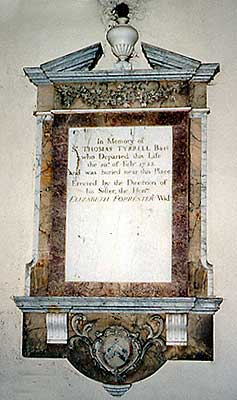 In Memory of
Sr. THOMAS TYRRELL Bart
who Departed this Life
the of Febr. 1755
And was buried near this Place
Erected by the Direction of
his Sister, the Honble.
ELIZABETH FORRESTER Wid